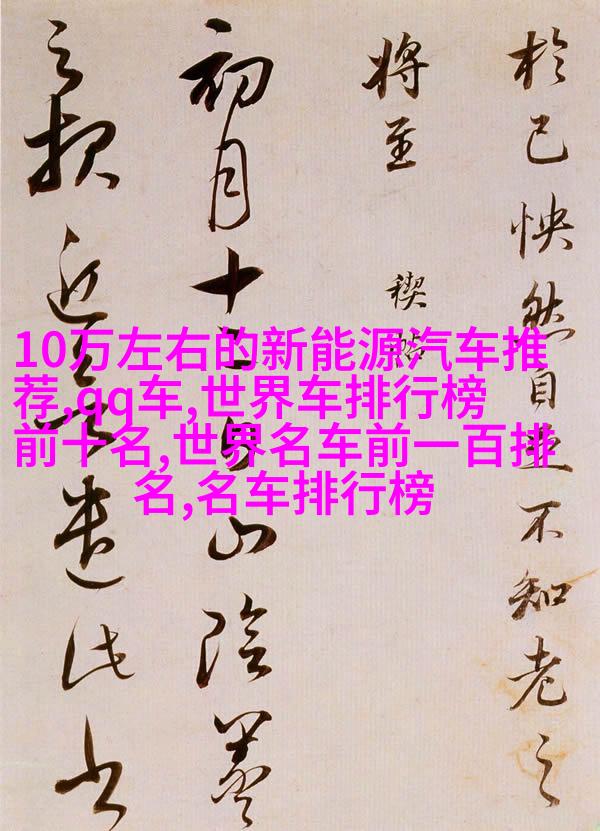 10万左右的新能源汽车推
荐,qq车,世界车排行榜
前十名,世界名车前一百排
名,名车排行榜
於己怏然自足不知老之
将至
禊帖
初月十二日山陰羲
之報近遣此書